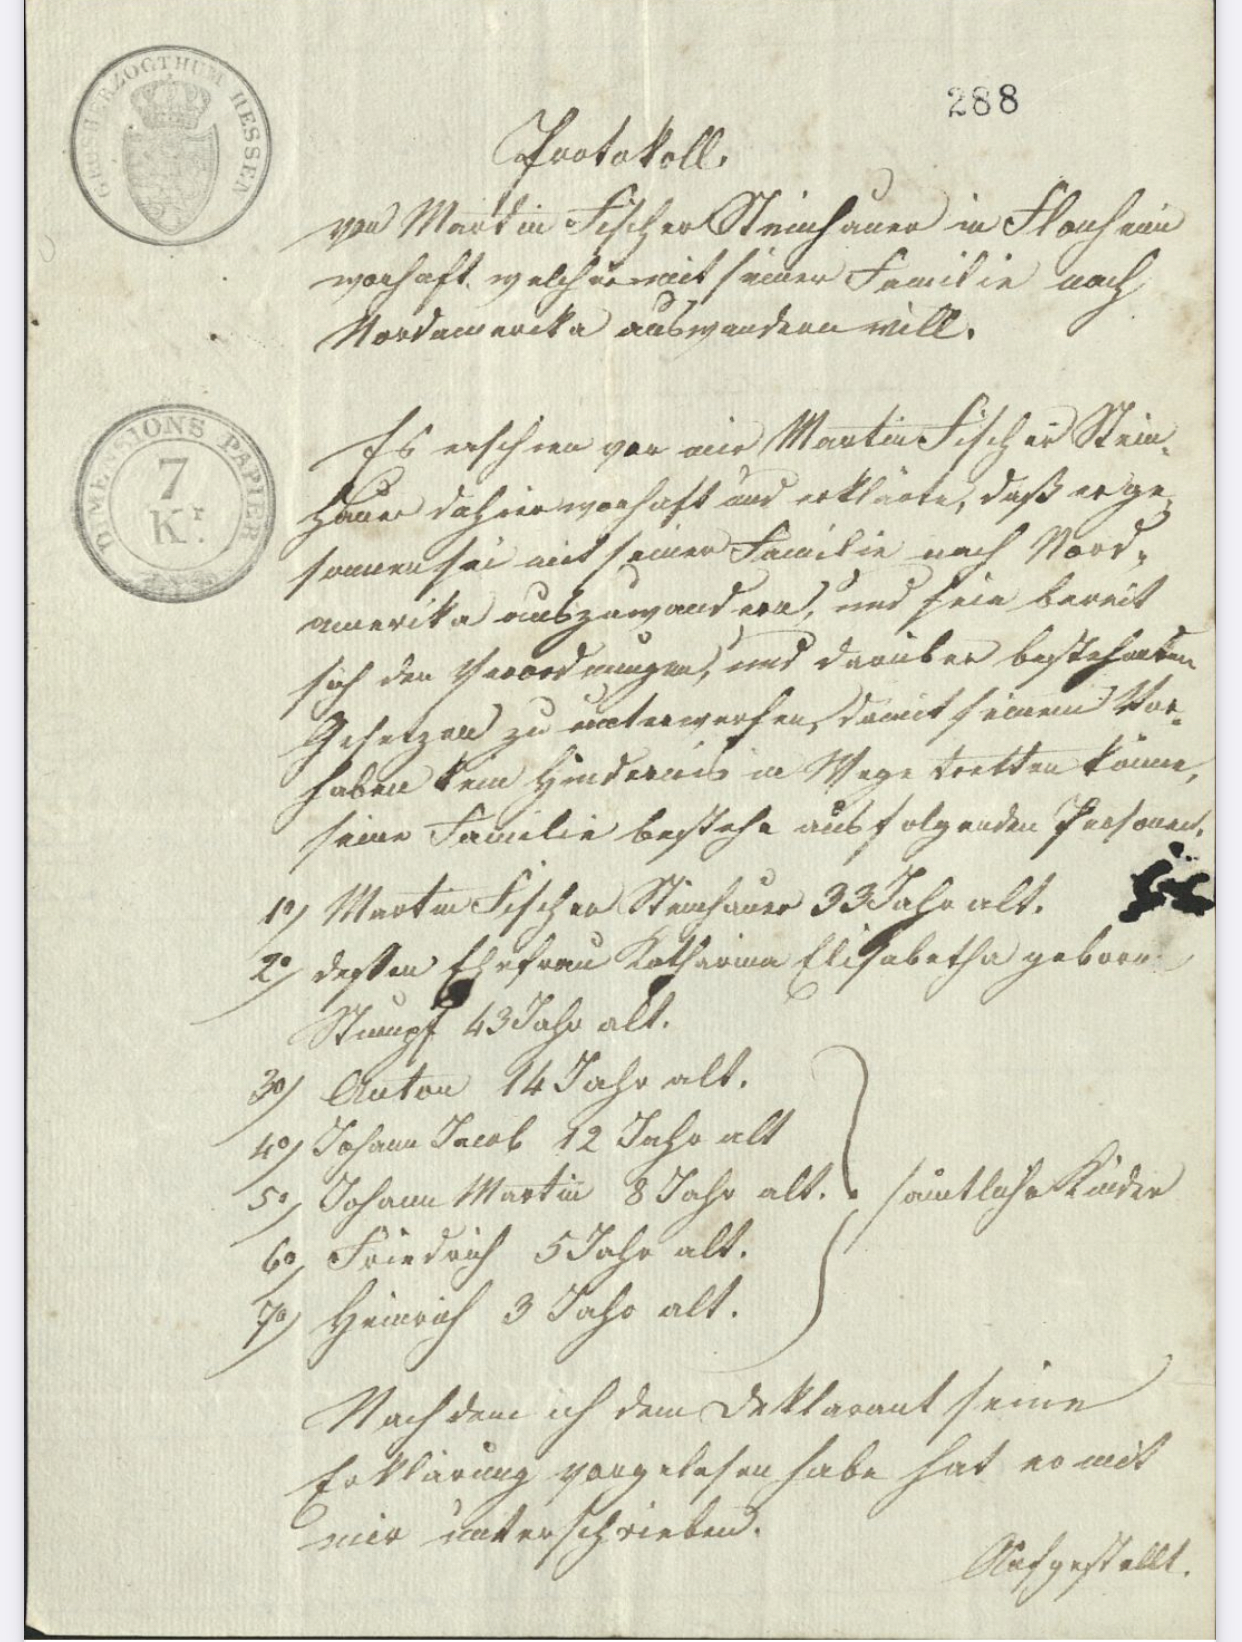 GROSHERZOGTHUM HESSEN
288
Protokoll.
von Martin Fischer Steinhauer in Flonheim
wohaft. welcher mit seiner Familie nach
Nordamerika auswandern will.
DIMENSIONS PAPIER
7
Kr.
Es erschien vor mir Martin Fischer Stein-
hauer dahier wohaft und erklärte, daß er ge-
sonnen sei mit seiner Familie nach Nord-
amerika auszuwandern, und seie bereit
sich den Verordnungen, und darüber bestehenden
Gesetzen zu unterwerfen, damit seinem Vor-
haben kein Hindernis in Wege tretten könne,
seine Familie bestehe aus folgenden Personen.
1o) Martin Fischer Steinhauer 33 Jahr alt.
2o) dessen Ehefrau Katharina Elisabetha geborne
Stumpf 43 Jahr alt.
3o) Anton 14 Jahr alt.
4o) Johann Jacob 12 Jahr alt
5o) Johann Martin 8 Jahr alt. sämtliche Kinder
6o) Friedrich 5 Jahr alt.
7o) Heinrich 3 Jahr alt.
Nach dem ich dem Deklarant seine
Erklärung vorgelesen habe hat er mit
mir unterschrieben.